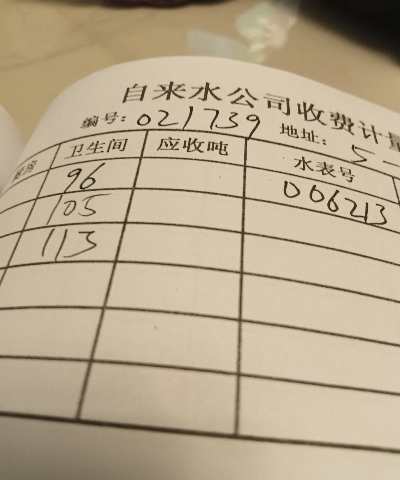 自来水公司收费计量
编号: 021739 地址: 5-
厨房 卫生间 应收吨 水表号
96 006213
105
113